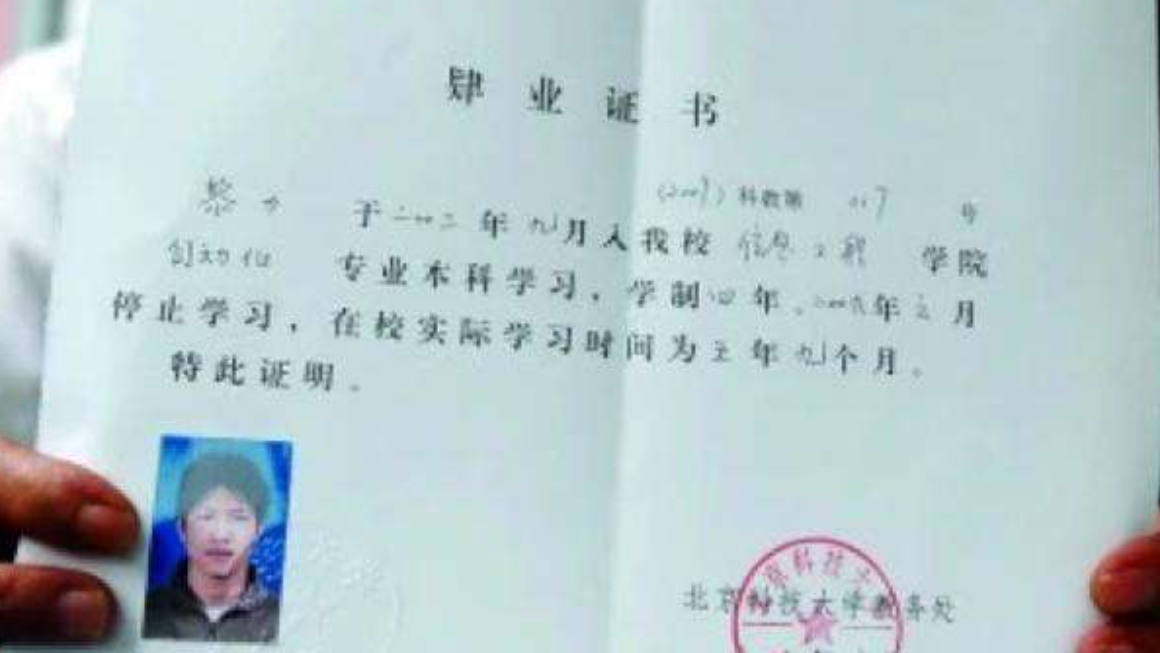 肄业证书
科教第 号
于二〇〇二年九月入我校信息工程学院
自动化专业本科学习,学制四年、年月
停止学习,在校实际学习时间为年九个月。
特此证明。
北京科技大学教务处